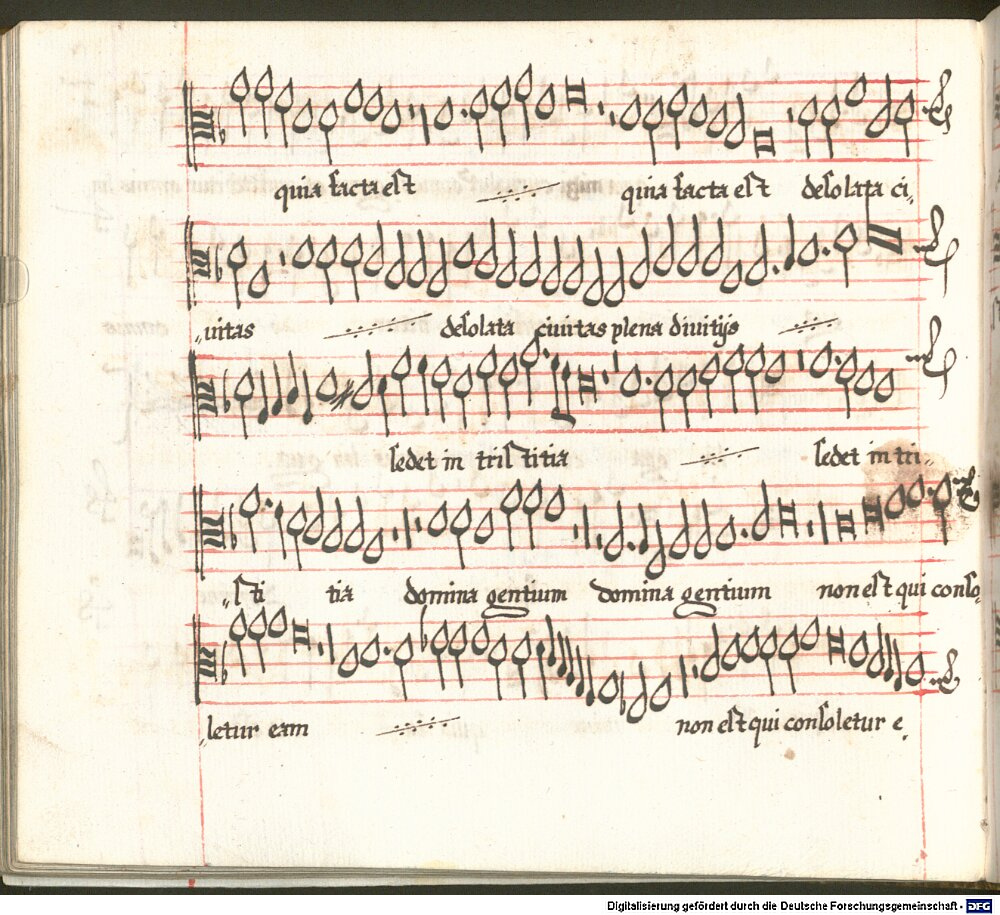 quia facta est ·/· quia facta est desolata ci„
„uitas ·/· desolata ciuitas plena diuitijs ·/·
sedet in tristitia ·/· sedet in tri„
„sti tia domina gentium domina gentium non est qui conso„
„letur eam ·/· non est qui consoletur e„
Digitalisierung gefördert durch die Deutsche Forschungsgemeinschaft - DFG